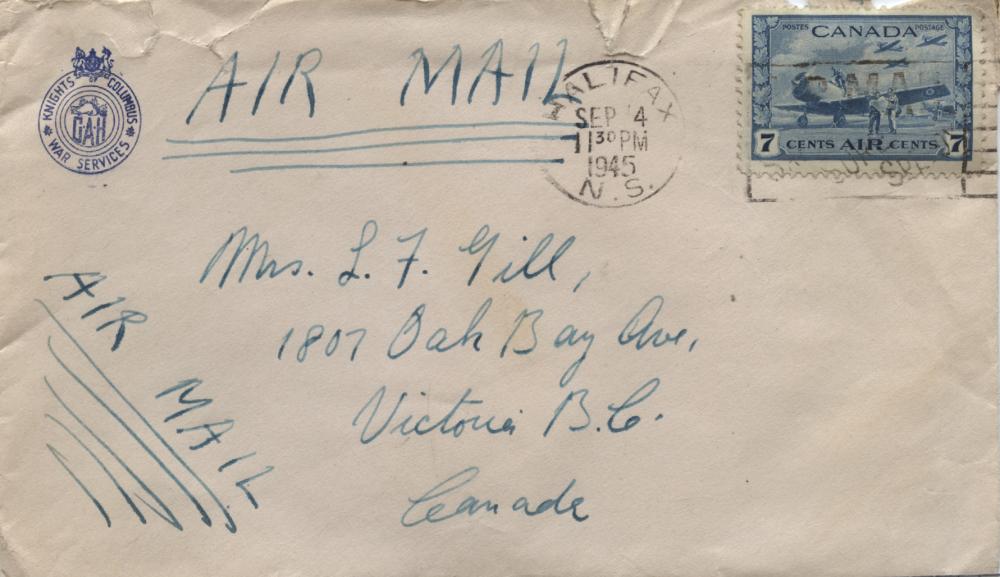 KNIGHTS COLUMBUS
CAH
WAR SERVICES
AIR MAIL
HALIFAX
SEP 4
11 30 PM
1945
N.S.
POSTES CANADA POSTAGE
7 CENTS AIR CENTS 7
Mrs. L. F. Gill,
1807 Oak Bay Ave,
Victoria B.C.
Canada
AIR
MAIL